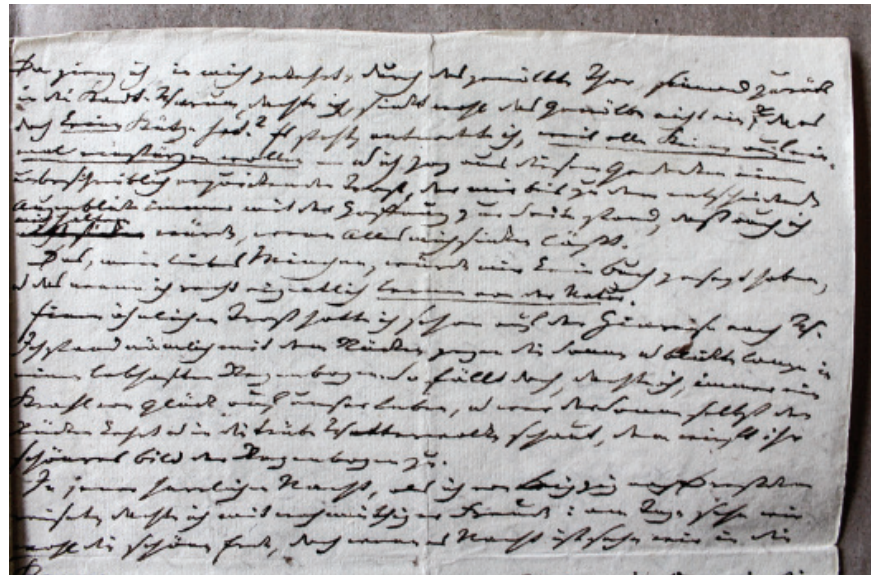 Da gieng ich, in mich gekehrt, durch das gewölbte Thor, sinnend zurück
in die Stadt. Warum, dachte ich, sinkt wohl das Gewölbe nicht ein, da es
doch keine Stütze hat? Es steht, antwortete ich, weil alle Steine auf ein-
mal einstürzen wollen – u ich zog aus diesem Gedanken einen
unbeschreiblich erquickenden Trost, der mir bis zu dem entscheidenden
Augenblicke immer mit der Hoffnung zur Seite stand, daß auch ich
mich halten
würde, wenn Alles mich sinken läßt.
Das, mein liebes Minchen, würde mir kein Buch gesagt haben,
u das nenn ich recht eigentlich lernen von der Natur.
Einen ähnlichen Trost hatte ich schon auf der Hinreise nach W.
Ich stand nämlich mit dem Rücken gegen die Sonne u blickte lange in
einen lebhaften Regenbogen. So fällt doch, dachte ich, immer ein
Strahl von Glück auf unser Leben, u wer der Sonne selbst den
Rücken kehrt u in die trübe Wetterwolke schaut, dem wirft ihr
schönres Bild der Regenbogen zu.
In jener herrlichen Nacht, als ich von Leipzig nach Dresden
reisete, dachte ich mit wehmüthiger Freude: am Tage sehn wir
wohl die schöne Erde, doch wenn es Nacht ist sehn wir in die